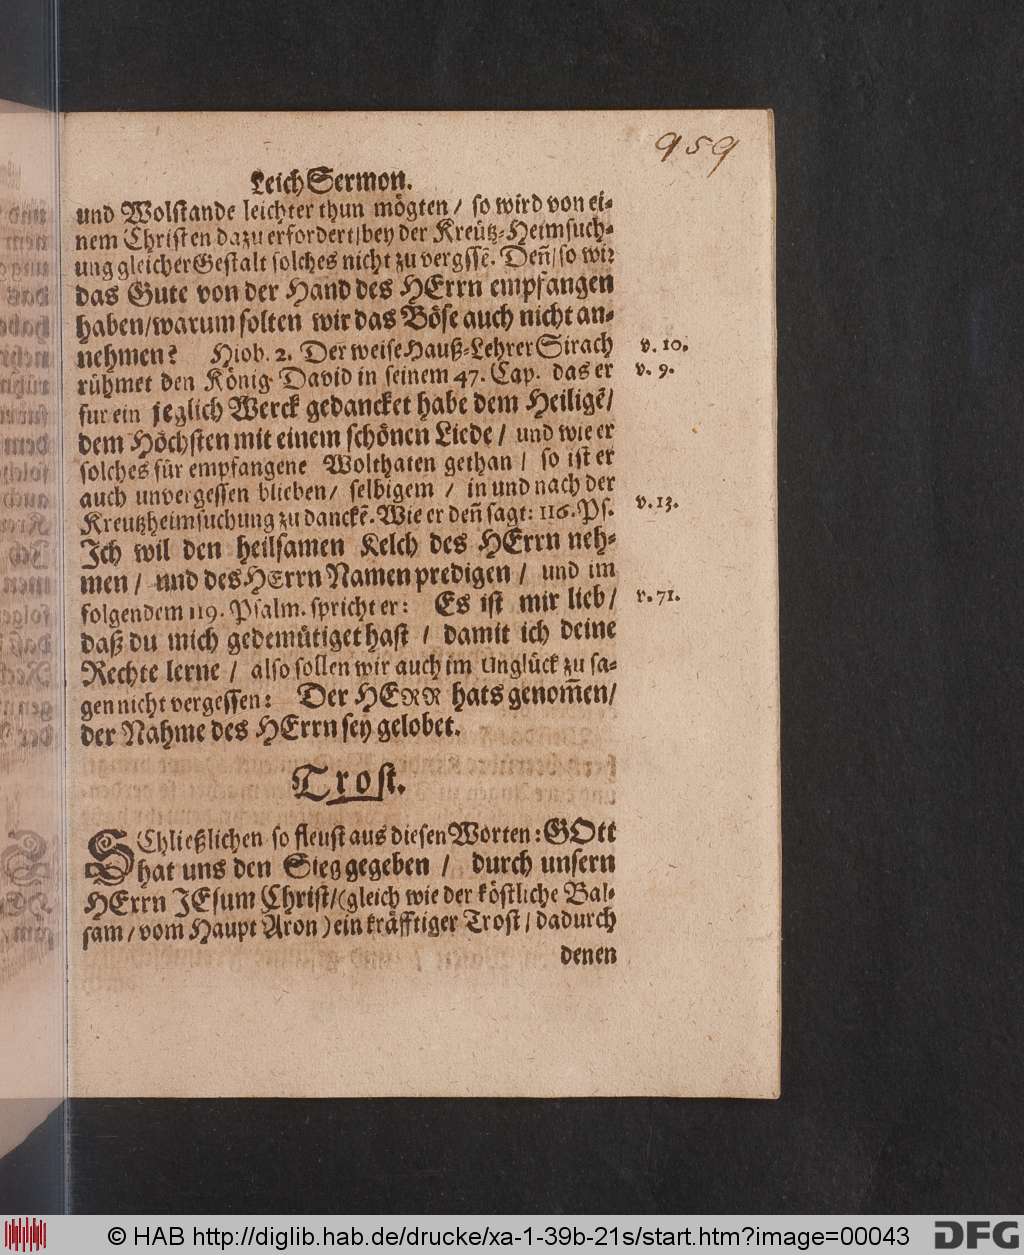 959
Leich Sermon.
und Wolstande leichter thun mögten / so wird von ei-
nem Christen dazu erfordert / bey der Kreütz-Heimsuch-
ung gleicher Gestalt solches nicht zu vergssē. Deñ / so wir
das Gute von der Hand des HErrn empfangen
haben / warum solten wir das Böse auch nicht an-
nehmen? Hiob. 2. Der weise Hauß-Lehrer Sirach v. 10.
rühmet den König David in seinem 47. Cap. das er v. 9.
fur ein jeglich Werck gedancket habe dem Heiligē /
dem Höchsten mit einem schönen Liede / und wie er
solches für empfangene Wolthaten gethan / so ist er
auch unvergessen blieben / selbigem / in und nach der
Kreutzheimsuchung zu danckē. Wie er deñ sagt: 116. Ps. v. 13.
Ich wil den heilsamen Kelch des HErrn neh-
men / und des HErrn Namen predigen / und im
folgendem 119. Psalm. spricht er: Es ist mir lieb / v. 71.
daß du mich gedemütiget hast / damit ich deine
Rechte lerne / also sollen wir auch im Unglück zu sa-
gen nicht vergessen: Der HERR hats genom̃en /
der Nahme des HErrn sey gelobet.
Trost.
SChließlichen so fleust aus diesen Worten: GOtt
hat uns den Sieg gegeben / durch unsern
HErrn JEsum Christ / (gleich wie der köstliche Bal-
sam / vom Haupt Aron) ein kräfftiger Trost / dadurch
denen
© HAB http://diglib.hab.de/drucke/xa-1-39b-21s/start.htm?image=00043 DFG